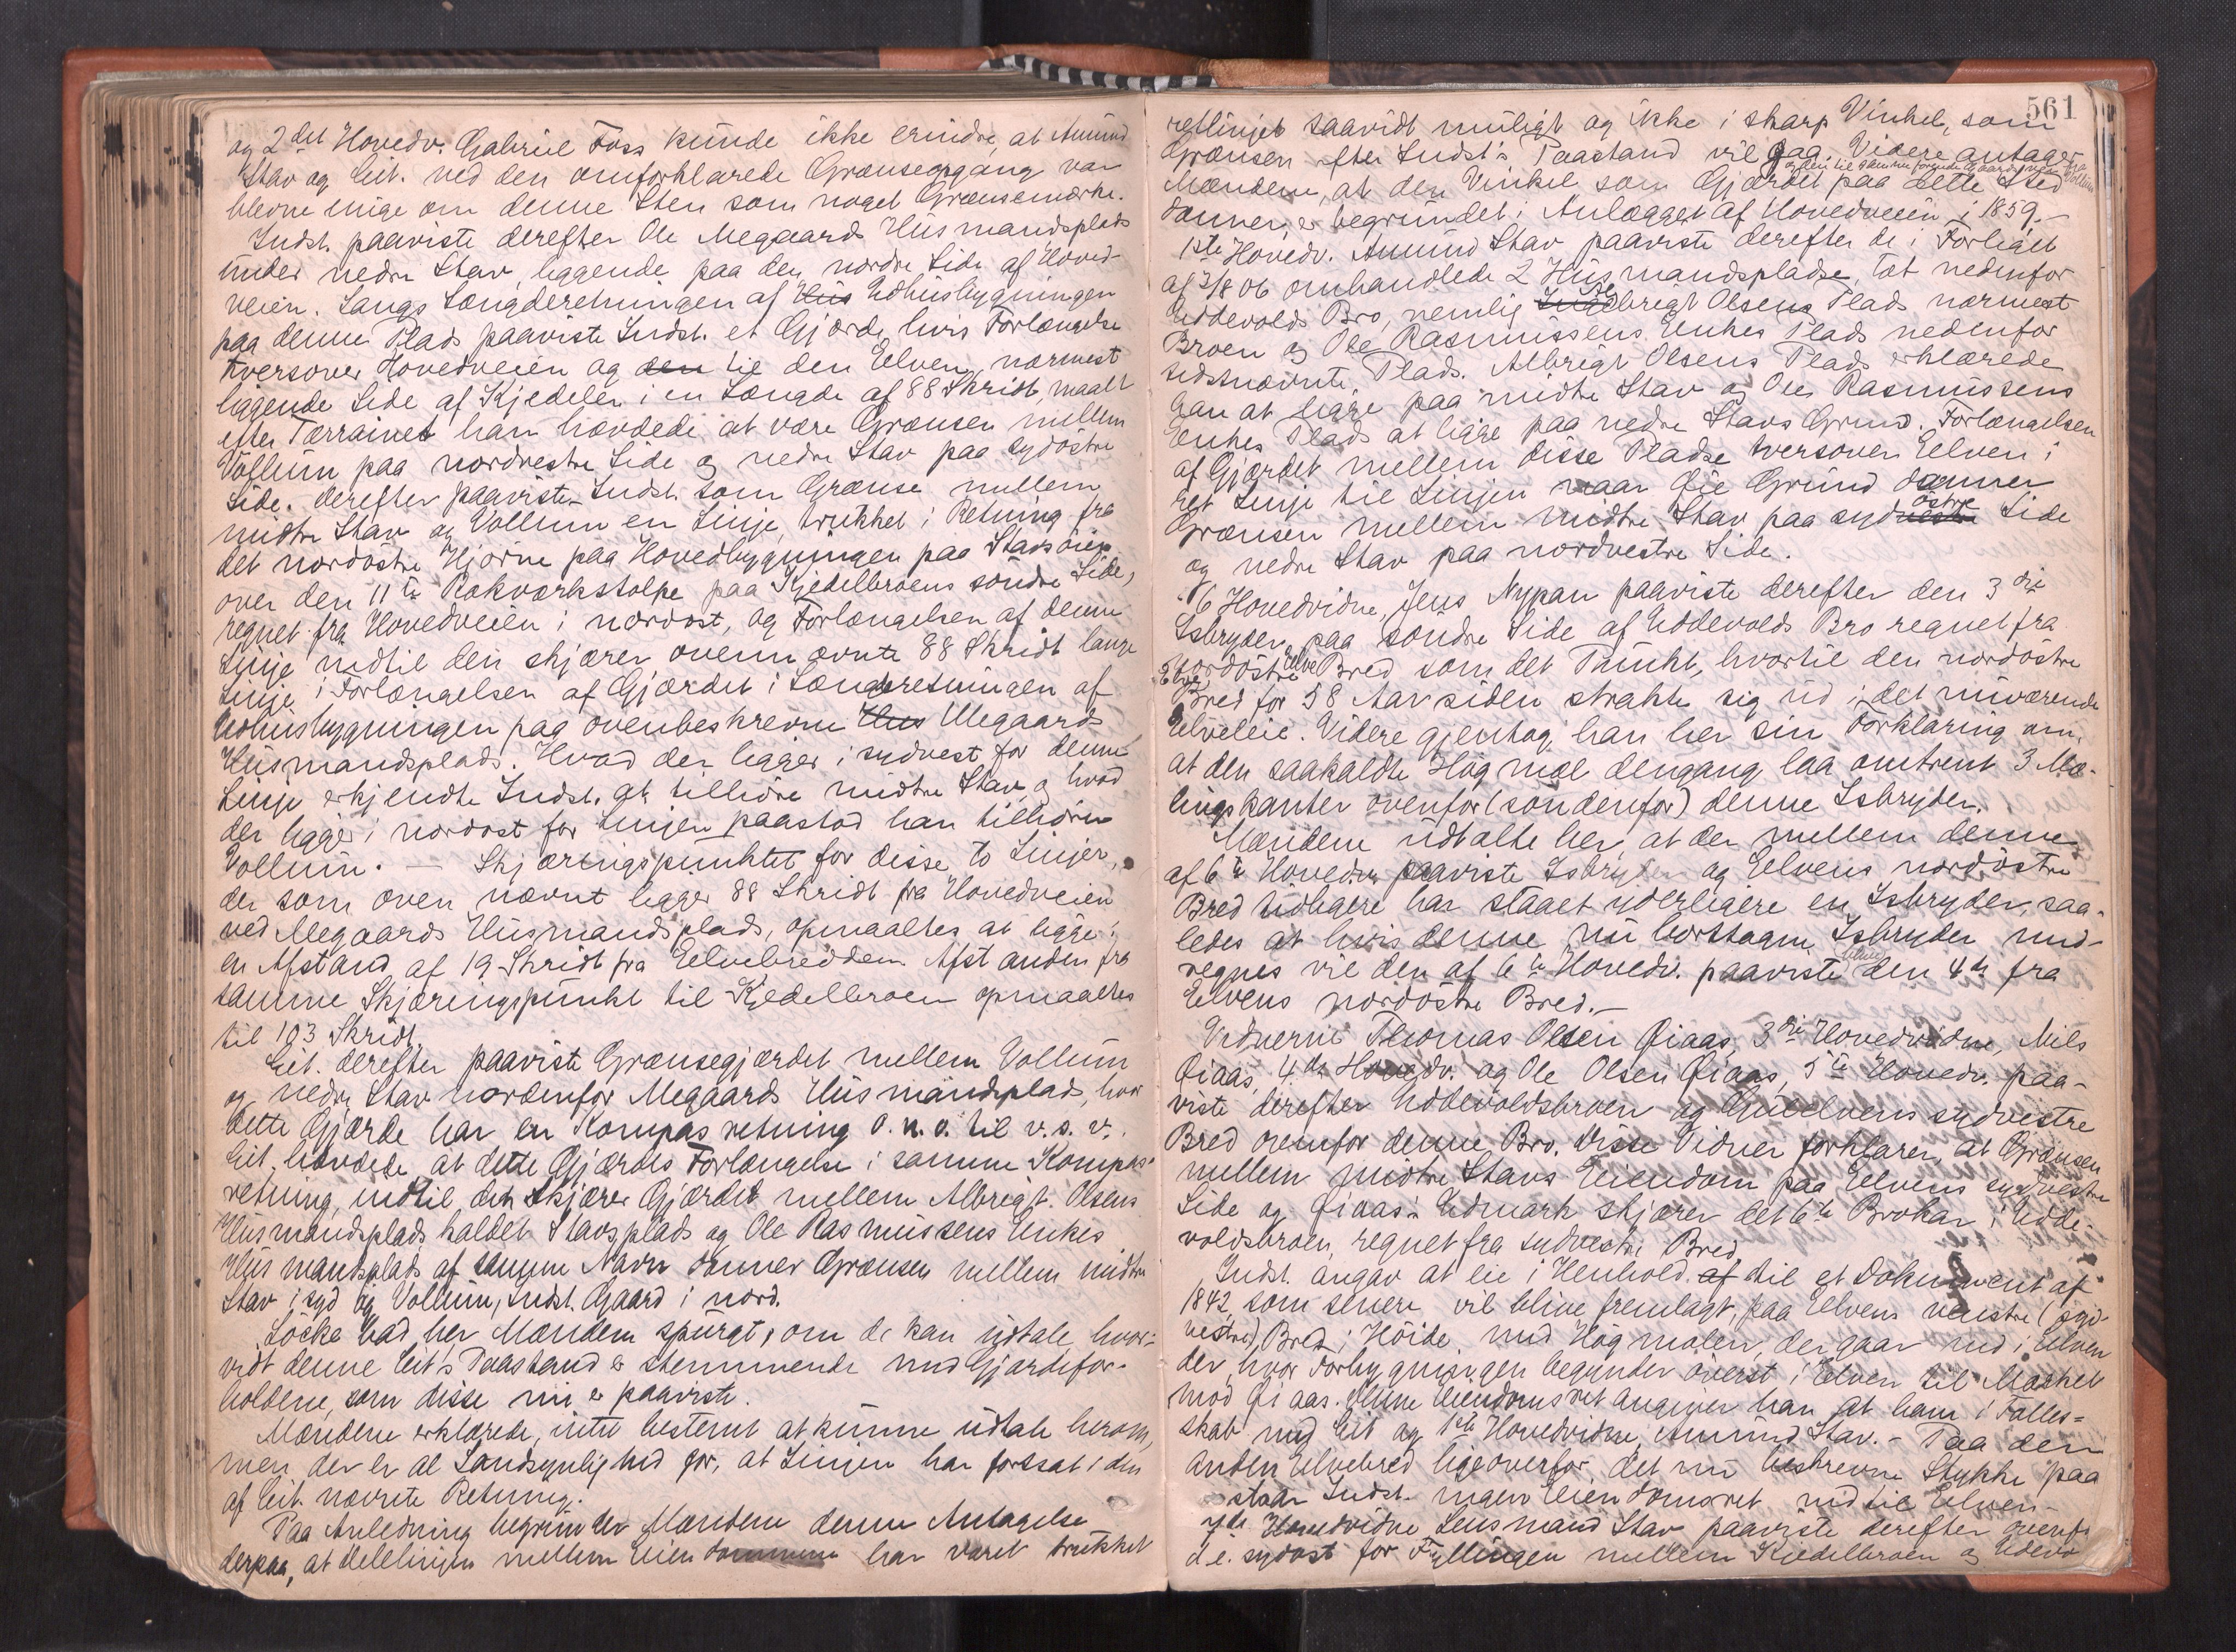 og 2det Hovedv. Gabriel Foss kunde ikke erindre, at Amund
Stav og Cit. ved den omforklarede Grænseopgang var
blevne enige om denne Sten som noget Grænsemærke.
Indst. paaviste derefter Ole Megaards Husmandsplads
under nedre Stav, liggende paa den nordre Side af Hoved-
veien. Langs Længderetningen af Hus Udhusbygningen
paa denne Plads paaviste Indst. et Gjærde, hvis Forlængelse
tversover Hovedveien og den til den Elven nærmest
liggende Side af Kjedelen i en Længde af 88 Skridt, maalt
efter Terrainet han hævdede at være Grænsen mellem
Vollum paa nordvestre Side og nedre Stav paa sydöstre
Side. Derefter paaviste Indst. som Grænse mellem
midtre Stav og Vollum en Linje, trukket i Retning fra
det nordöstre Hjörne paa Hovedbygningen paa Stavsöien
over den 11te Rækværkstolpe paa Kjedelbroens söndre Side,
regnet fra Hovedveien i nordöst, og Forlængelsen af denne
Linje indtil den skjærer ovennævnte 88 Skridt lange
Linje i Forlængelsen af Gjærdet i Længderetningen af
Udhusbygningen paa ovenbeskrevne Hus Megaards
Husmandsplads. Hvad der ligger i sydvest for denne
Linje erkjendte Indst. at tilhöre midtre Stav og hvad
der ligger i nordost for Linjen paastod han tilhörer
Vollum. — Skjæringspunktet for disse to Linjer,
der som oven nævnt ligger 88 Skridt fra Hovedveien
ved Megaards Husmandsplads, opmaaltes at ligge i
en Afstand af 19 Skridt fra Elvebredden. Afstanden fra
samme Skjæringspunkt til Kjedelbroen opmaaltes
til 103 Skridt.
Cit. derefter paaviste Grænsegjærdet mellem Vollum
og nedre Stav nordenfor Megaards Husmandsplads, hvor
dette Gjærde har en Kompasretning o. n. o. til v. s. v.
Cit. hævdede at dette Gjærdes Forlængelse i samme Kompas-
retning, indtil det skjærer Gjærdet mellem Albrigt. Olsens
Husmandsplads kaldet Stavsplads og Ole Rasmussens Enkes
Husmandsplads af samme Navn danner Grænsen mellem midtre
Stav i syd og Vollum, Indst. Gaard i nord.
Löcke bad her Mændene spurgt, om de kan udtale, hvor-
vidt denne Cit's Paastand er stemmende med Gjærdefor-
holdene, som disse nu er paaviste.
Mændene erklærede, intet bestemt at kunne udtale herom,
men der er al Sandsynlighed for, at Linjen har fortsat i den
af Cit. nævnte Retning.
Paa Anledning begrunder Mændene denne Antagelse
derpaa, at delelinjen mellem Eiendommene har været trukket
561
retlinjet saavidt muligt og ikke i skarp Vinkel, som
Grænsen efter Indst's Paastand vil gaa. Videre antager
og den til samme förende Gaardsvei fra Vollum
Mændene, at den Vinkel som Gjærdet paa dette Sted
danner, er begrundet i Anlægget af Hovedveien i 1859.—
1ste Hovedv. Amund Stav paaviste derefter de i Forliget
af 3/8 06 omhandlede 2 Husmandspladse, tæt nedenfor
Uddevolds Bro, nemlig brigt Olsens Plads nærmest
Broen og Ole Rasmussens Enkes Plads nedenfor
sidstnævnte Plads. Albrigt Olsens Plads erklærede
han at ligge paa midtre Stav og Ole Rasmussens
Enkes Plads at ligge paa nedre Stavs Grund. Forlængelsen
af Gjærdet mellem disse Pladse tversover Elven i
ret Linje til Linjen naar Öie Grund danner
östre
Grænsen mellem midtre Stav paa sydvestre Side
og nedre Stav paa nordvestre Side.
6 Hovedvidne, Jens Nypan paaviste derefter den 3die
Isbryder paa söndre Side af Uddevolds Bro regnet fra
nordöstre Elve Bred som det Punkt, hvortil den nordöstre
Elve
Bred for 58 Aar siden strakte sig ud i det nuværende
Elveleie. Videre gjentog han her sin Forklaring om,
at den saakaldte Högmæl dengang laa omtrent 3 Mæ-
lingskanter ovenfor (söndenfor) denne Isbryder.
Mændene udtalte her, at der mellem denne
af 6te Hovedv. paaviste Isbryder og Elvens nordöstre
Bred tidligere har staaet yderligere en Isbryder, saa-
ledes at hvis denne nu borttagne Isbryder med-
regnes vil den af 6te Hovedv. paaviste blive den 4de fra
Elvens nordöstre Bred.—
Vidnerne Thomas Olsen Öiaas, 3die Hovedvidne, Nils
Öiaas, 4de Hovedv. og Ole Olsen Öiaas, 5te Hovedv. paa-
viste derefter Uddevoldsbroen og Gulelvens sydvestre
Bred ovenfor denne Bro. Disse Vidner forklarer, at Grænsen
mellem midtre Stavs Eiendom paa Elvens sydvestre
Side og Öiaas: Udmark skjærer det 6te Brokar i Udde-
voldsbroen, regnet fra sydvestre Bred.
Indst. angav at eie i Henhold af til et Dokument af
1842, som senere vil blive fremlagt, paa Elvens venstre (syd-
vestre) Bred i Höide med Högmælen, der gaar ned i Elven
der, hvor Forbygningen begynder överst i Elven til Mærket
mod Öiaas. Denne Eiendomsret angiver han at have i Fælles-
skab med Cit og 1ste Hovedvidne, Amund Stav. — Paa den
anden Elvebred ligeoverfor det nu beskrevne Stykke paa
staar Indst. ingen Eiendomsret ned til Elven.—
7de Hovedvidne Lensmand Stav paaviste derefter ovenf
d.e. sydöst for Fyllingen mellem Kjedelbroen og Udevo